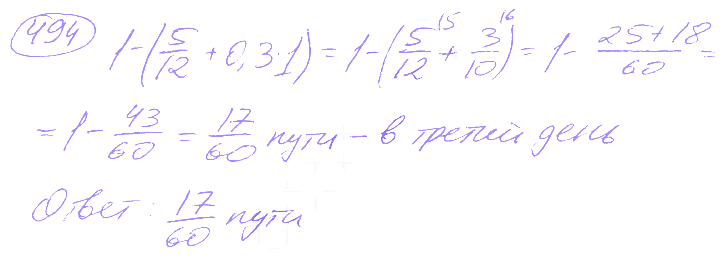 494 1 - (5/12 + 0,3·1) = 1 - (5/12 ⁵ + 3/10 ⁶) = 1 - (25+18)/60 =
= 1 - 43/60 = 17/60 пути - в третий день
Ответ: 17/60 пути